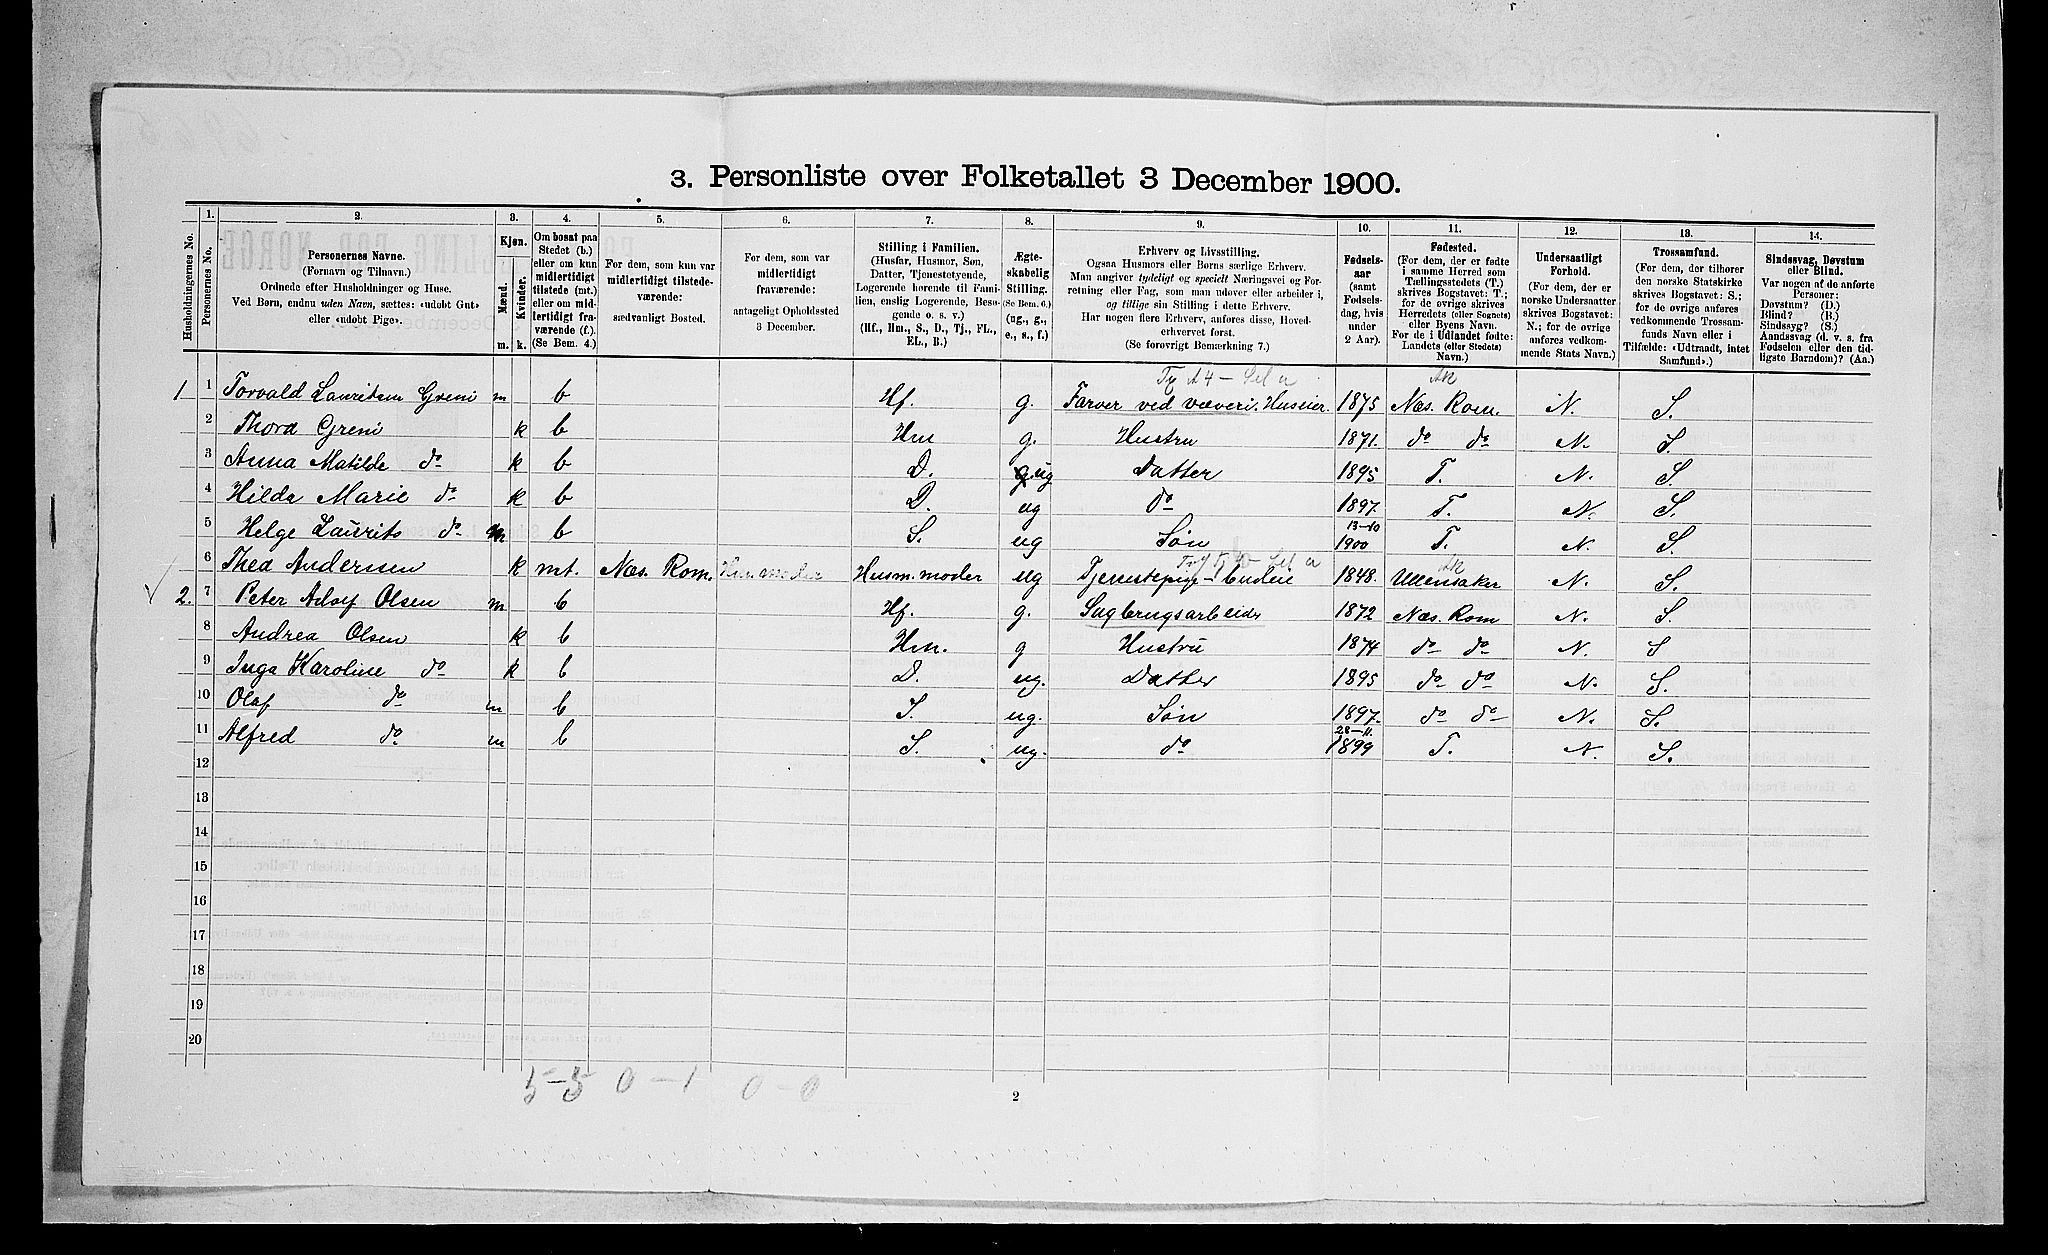 3. Personliste over Folketallet 3 December 1900.
1. 2. 3. 4. 5. 6. 7. 8. 9. 10. 11. 12. 13. 14.
Husholdningernes No.
Personernes No.
Personernes Navne.
(Fornavn og Tilnavn.)
Ordnede efter Husholdninger og Huse.
Ved Børn, endnu uden Navn, sættes: «udøbt Gut»
eller «udøbt Pige».
Kjøn.
Mænd. Kvinder.
m. k.
Om bosat paa
Stedet (b.)
eller om kun
midlertidigt
tilstede (mt.)
eller om mid-
lertidigt fra-
værende (f.).
(Se Bem. 4.)
For dem, som kun var
midlertidigt tilstede-
værende:
sædvanligt Bosted.
For dem, som var
midlertidigt
fraværende:
antageligt Opholdssted
3 December.
Stilling i Familien.
(Husfar, Husmor, Søn,
Datter, Tjenestetyende,
Logerende hørende til Fami-
lien, enslig Logerende, Besø-
gende o. s. v.)
(Hf., Hm., S., D., Tj., FL.,
EL., B.)
Ægte-
skabelig
Stilling.
(Se Bem. 6.)
(ug., g.,
e., s., f.)
Erhverv og Livsstilling.
Ogsaa Husmors eller Børns særlige Erhverv.
Man angiver tydeligt og specielt Næringsvei og For-
retning eller Fag, som man udøver eller arbeider i,
og tillige sin Stilling i dette Erhverv.
Har nogen flere Erhverv, anføres disse, Hoved-
erhvervet først.
(Se forøvrigt Bemerkning 7.)
Fødsels-
aar
(samt
Fødsels-
dag, hvis
under
2 Aar).
Fødested.
(For dem, der er fødte
i samme Herred som
Tællingsstedets (T.)
skrives Bogstavet: T.;
for de øvrige skrives
Herredets (eller Sognets)
eller Byens Navn.
For de i Udlandet fødte:
Landets (eller Stedets)
Navn.)
Undersaatligt
Forhold.
(For dem, der er
norske Undersaatter
skrives Bogstavet:
N.; for de øvrige
anføres vedkom-
mende Stats Navn.)
Trossamfund.
(For dem, der tilhører
den norske Statskirke
skrives Bogstavet: S.;
for de øvrige anføres
vedkommende Trossam-
funds Navn eller i
Tilfælde: «Udtraadt, intet
Samfund».)
Sindssvag, Døvstum
eller Blind.
Var nogen af de anførte
Personer:
Døvstum? (D.)
Blind? (B.)
Sindssyg? (S.)
Aandssvag (d. v. s. fra
Fødselen eller den tid-
ligste Barndom)? (Aa.)
1 1 Torvald Lauritsen Greni m b Hf. g. Farver ved væveri. Huseier. 1875 Næs. Rom. N. S.
2 Thora Greni k b Hm g. Hustru 1871. do do N. S.
3 Anna Matilde do k b D. ug Datter 1895 T. N. S.
4 Hilda Marie do k b D. ug do 1897. T. N. S.
5 Helge Laurits do m b S. ug Søn 13-10 1900 T. N. S.
6 Thea Andersen k mt. Næs. Rom. Husm. moder ug 1848. Ullensaker N. S.
2. 7 Peter Adolf Olsen m b Hf. g. Sagbrugsarbeider 1872 Næs. Rom N. S.
8 Andrea Olsen k b Hm. g Hustru 1874 do do N. S
9 Inga Karoline do k b D. ug. Datter 1895 do do N. S.
10 Olaf do m b S. ug. Søn 1897. do do N. S.
11 Alfred do m b S. ug. do 28-11. 1899 T. N. S.
12
13
14
15
16
17
18
19
20
5-5 0-1 0-0
2